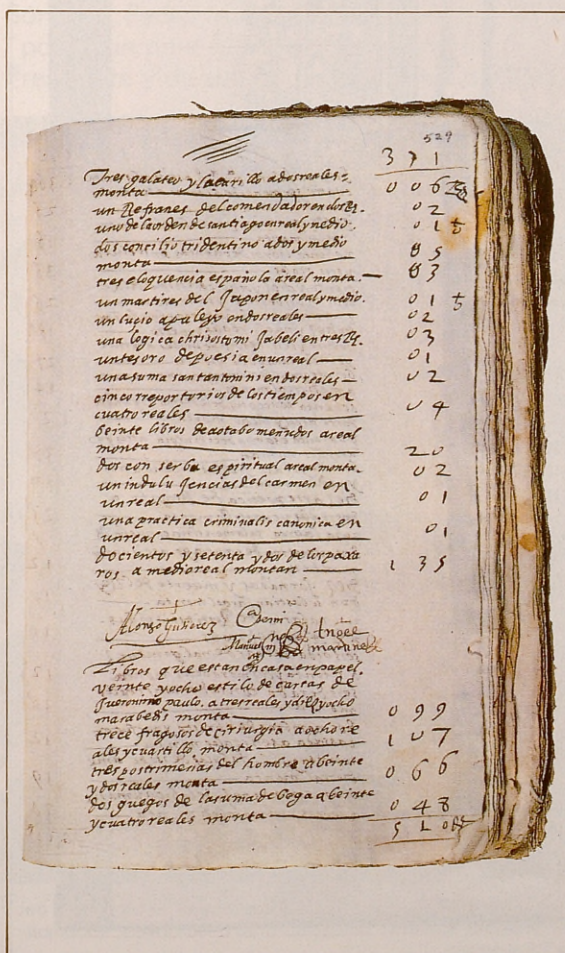 529
3 7 1
Tres galateo y lacarillo a dos reales
monta 0 0 6 Rs
un Refranes del comendador en dos Rs. 0 2
uno de la orden de santiago en real y medio. 0 1
dos concilio tridentino a dos y medio
monta 0 5
tres eloquencia española a real monta. 0 3
un martires del Japon en real y medio. 0 1
un lucio apaleyo en dos reales 0 2
una logica chrisostomi Jabeli en tres Rs. 0 3
un tesoro de puesia en un real 0 1
una suma santantonini en dos reales 0 2
cinco rreportorios de los tiempos en
cuatro reales 0 4
beinte libros de a otabo menudos a real
monta 2 0
dos con ser ba espiritual a real monta. 0 2
un indulujencias del carmen en
un real 0 1
una practica criminalis canonica en
un real 0 1
docientos y setenta y dos de los paxa
ros a medio real montan 1 3 5
Alonso Gutierrez
martinez
Libros que estan en casa en papel.
veinte y ocho estilo de cartas de
Gueronimo paulo, a tres reales y diez y ocho
marabedis monta 0 9 9
trece fragosos de cirurgia a ocho re
ales y cuartillo monta 1 0 7
tres postrimerias del hombre a beinte
y dos reales monta 0 6 6
dos guegos de la suma de bega a beinte
y cuatro reales monta 0 4 8
5 1 0 Rs